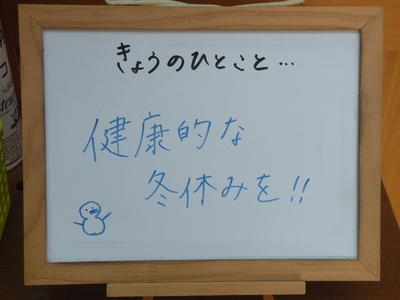 きょうのひとこと…
健康的な
冬休みを!!